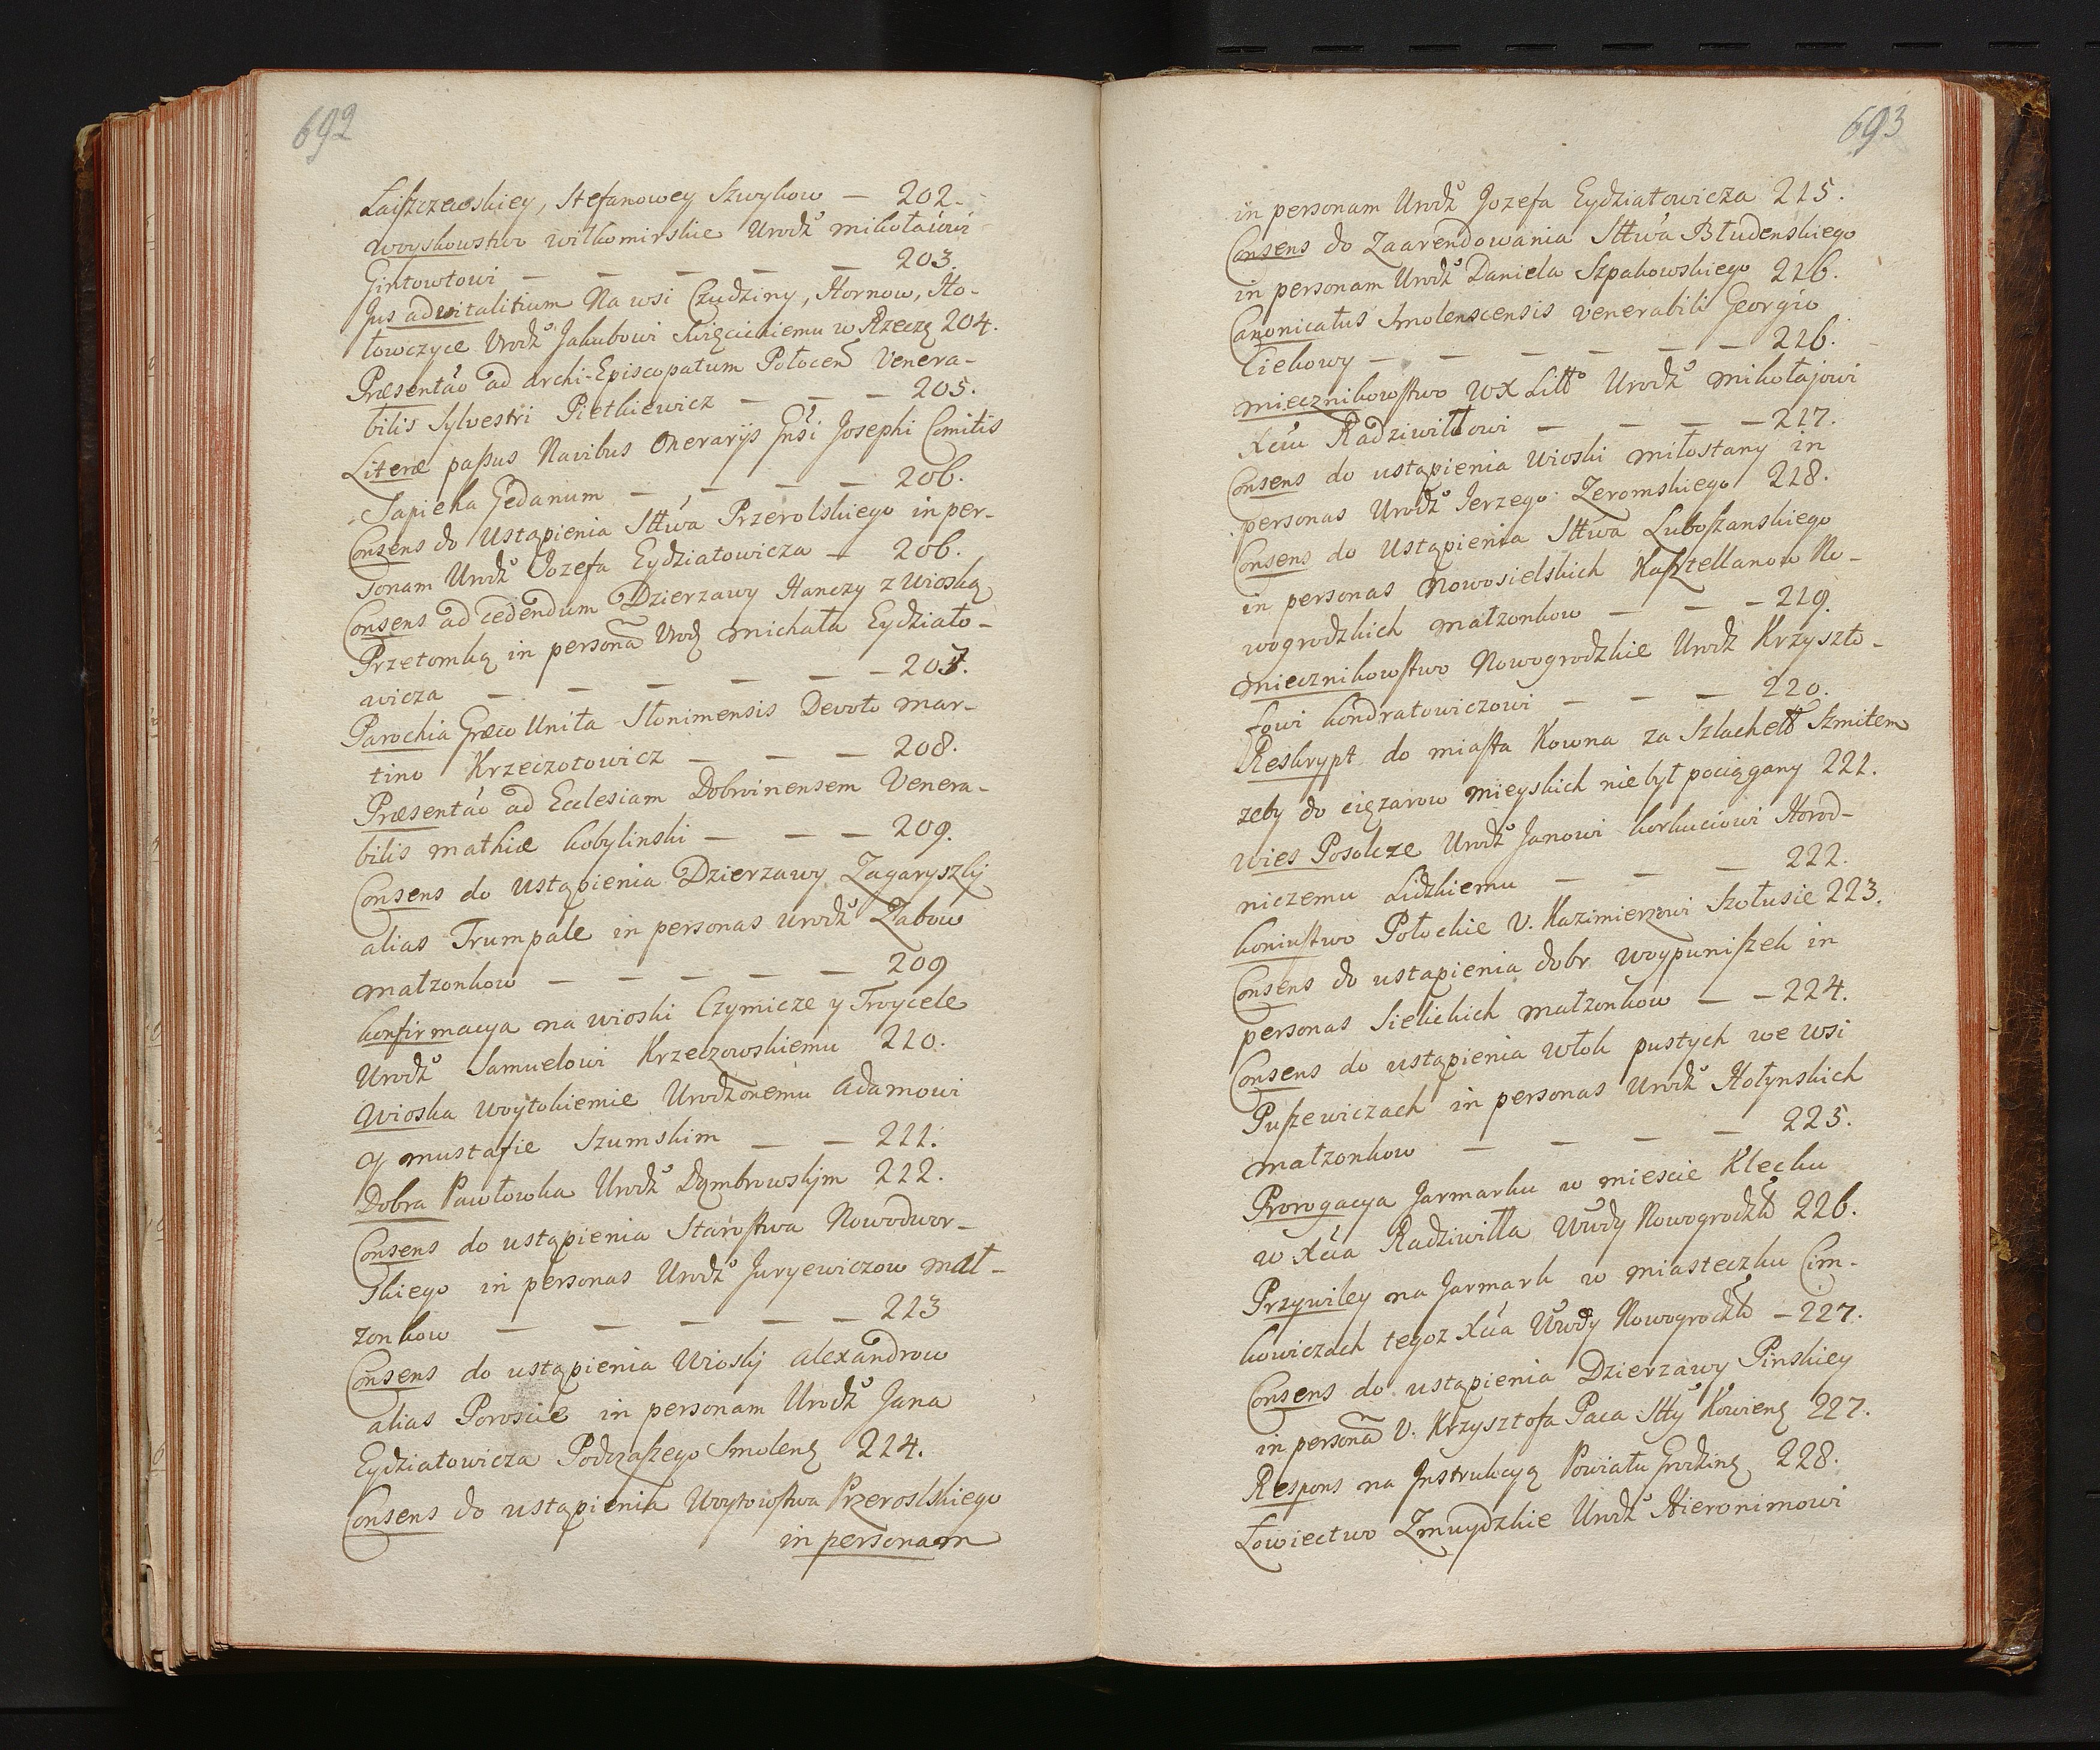 692
Łaiszczewskiey, Stefanowey Szwykow — 202.
Woyskowstwo wiłkomirskie Urodź mikołaiowi
Gintowtowi — — — — — 203.
Jus advitalitium Na wsi Czudziny, Hornow, Ho-
towczyce Urodź Jakubowi Swięcickiemu w Rzeczę 204.
Præsentáo ad Archi-Episcopatum Połoceń Venera-
bilis Sylvestri Pietkiewicz — — — 205.
Literæ paßus Navibus Onerarijs Gnsi Josephi Comitis
Sapieha Gedanum — — — — 206.
Consens do Ustąpienia Sttwa Przerolskiego in per-
sonam Urodź Jozefa Eydziatowicza — 206.
Consens ad cedendum Dzierzawy Hanczy z Wioską
Przetomką in personã Urodz michała Eydziato-
wicza — — — — — — 207.
Parochia Græco Unita Słonimensis Devoto mar-
tino Krzeczotowicz — — — 208.
Præsentáo ad Ecclesiam Dobrvinensem Venera-
bilis mathiæ Kobylinski — — — 209.
Consens do Ustąpienia Dzierzawy Zagaryszky
alias Trumpale in personas urodź Zabow
matzonkow — — — — — 209
konfirmacya na wioski Czymicze y Troycele
Urodź Samuelowi Krzeczowskiemu 210.
Wioska Woytokiemie Urodzonemu Adamowi
y mustafie Szumskim — — 211.
Dobra Pawłowka Urodź Dąmbrowskjm 212.
Consens do ustąpienia Starostwa Nowodwor-
skiego in personas Urodź Juryewiczow mał-
zonkow — — — — — 213
Consens do ustąpienia Wioskj Alexandrow
alias Poroscie in personam Urodź Jana
Eydziatowicza Podczaszego Smolenz 214.
Consens do ustąpienia Woytowstwa Przeroslskiego
in personam
693
in personam Urodź Jozefa Eydziatowicza 215.
Consens do Zaarendowania Sttwa Błudenskiego
in personam Urodź Daniela Szpakowskiego 216.
Canonicatus Smolenscensis venerabili Georgio
Ciekowy — — — — — — 216.
miecznikowstwo WX Litto Urodź mikołajowi
Xciu Radziwiłłowi — — — — 217.
Consens do ustąpienia Wioski miłostany in
personas Urodź Jerzego Zeromskiego 218.
Consens do Ustąpienia Sttwa Luboszanskiego
in personas Nowosielskich Kasztellanow No-
wogrodzkich matzonkow — — — 219.
miecznikowstwo Nowogrodzkie Urodź Krzyszto-
fowi kondratowiczowi — — — 220.
Reskrypt do miasta Kowna za Szlachett Szmitem
zeby do cięzarow mieyskich nie był pociągany 221.
Wies Posolcze Urodź Janowi korkuciowi Horod-
niczemu Lidzkiemu — — — 222.
koniustwo Połockie U. Kazimierzowi Szołusie 223.
Consens do ustąpienia dobr woypuniszek in
personas Sielickich matzonkow — — 224.
Consens do ustąpienia Włok pustych we wsi
Puszewiczach in personas Urodź Hołynskich
matzonkow — — — — 225.
Prorogacya Jarmarku w miescie Klecku
w Xcia Radziwiłła Wwdy Nowogrodzko 226.
Przywiley na Jarmark w miasteczku Cim-
kowiczach tegoz Xcia Wwdy Nowogrodzko — 227.
Consens do ustąpienia Dzierzawy Pinskiey
in personã U. Krzysztofa Paca Stty Kowienz 227.
Respons na Jnstrukcyą Powiatu Grodzinz 228.
Łowiectwo Zmuydzkie Urodź Hieronimowi